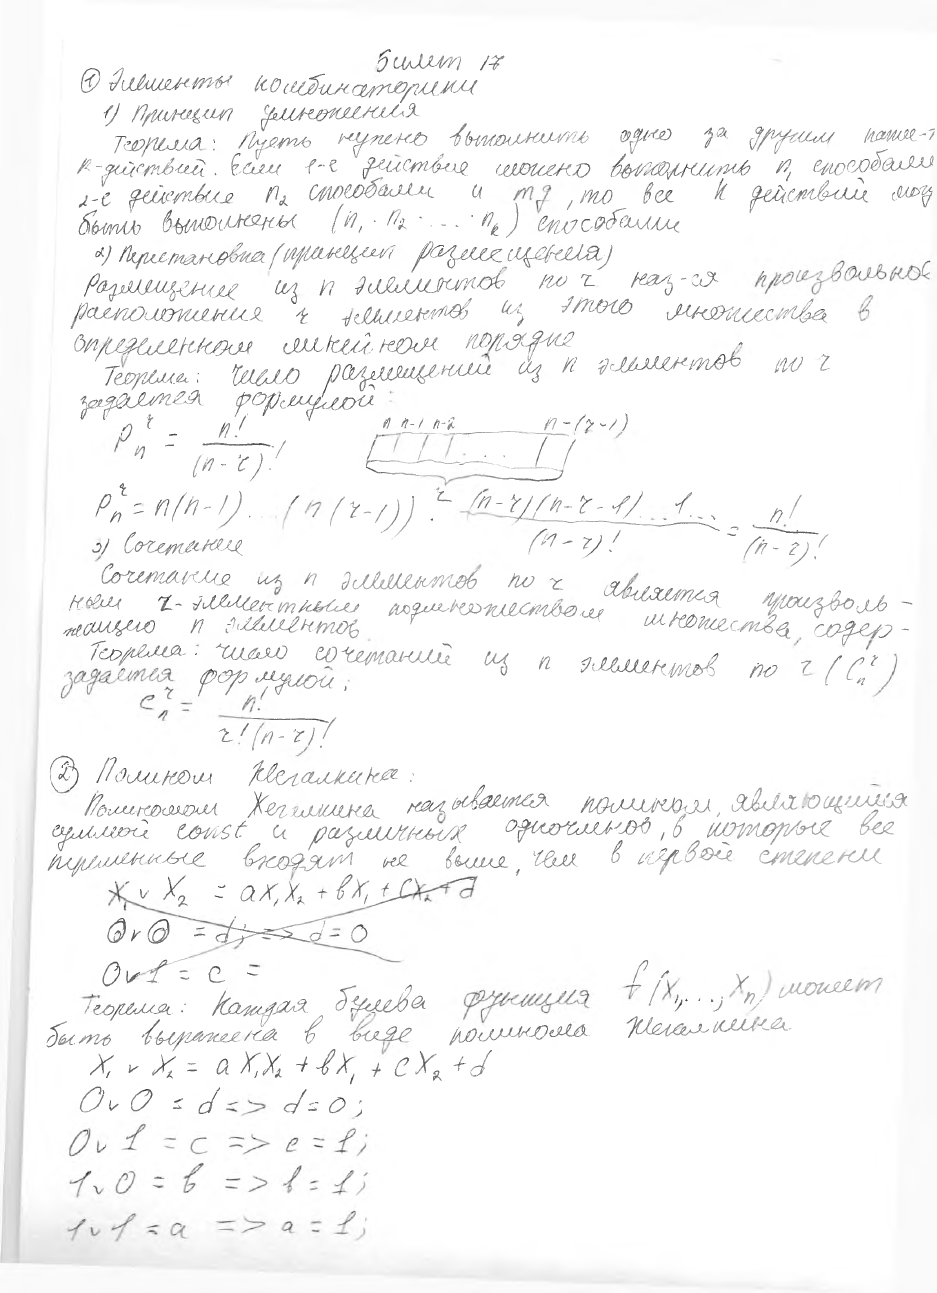 Билет 17
① Элементы комбинаторики
1) Принцип умножения
Теорема: Пусть нужно выполнить одно за другим
k-действий. Если 1-е действие можно выполнить n₁ способами
2-е действие n₂ способами и тд, то все k действий могу
быть выполнены (n₁ · n₂ · ... · nₖ) способами
2) Перестановка (принцип размещения)
Размещение из n элементов по r наз-ся произвольное
расположение r элементов из этого множества в
определенном линейном порядке
Теорема: число размещений из n элементов по r
задается формулой:
n n-1 n-2 n-(r-1)
Pₙʳ = n!/(n-r)!
r
Pₙʳ = n(n-1)...(n(r-1)) · (n-r)(n-r-1)...1.../(n-r)! = n!/(n-r)!
3) Сочетание
Сочетание из n элементов по r является произволь-
ным r-элементным подмножеством множества, содер-
жащего n элементов
Теорема: число сочетаний из n элементов по r (Cₙʳ)
задается формулой:
Cₙʳ = n!/r!(n-r)!
② Полином Жегалкина:
Полиномом Жегалкина называется полином, являющийся
суммой const и различных одночленов, в которые все
переменные входят не выше, чем в первой степени
X₁ v X₂ = aX₁X₂ + bX₁ + cX₂ + d
0v0 = d; => d=0
0v1 = c =
Теорема: Каждая булева функция f(X₁,...,Xₙ) может
быть выражена в виде полинома Жегалкина
X₁ v X₂ = aX₁X₂ + bX₁ + cX₂ + d
0v0 = d => d=0;
0v1 = c => c=1;
1v0 = b => b=1;
1v1 = a => a=1;